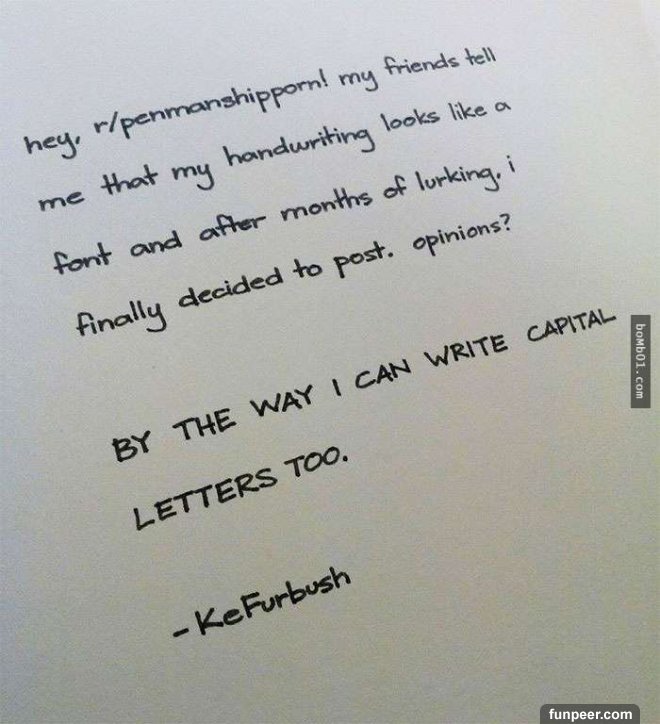 hey, r/penmanshipporn! my friends tell
me that my handwriting looks like a
font and after months of lurking, i
finally decided to post. opinions?
BY THE WAY I CAN WRITE CAPITAL
LETTERS TOO.
- KeFurbush
boMb01.com
funpeer.com